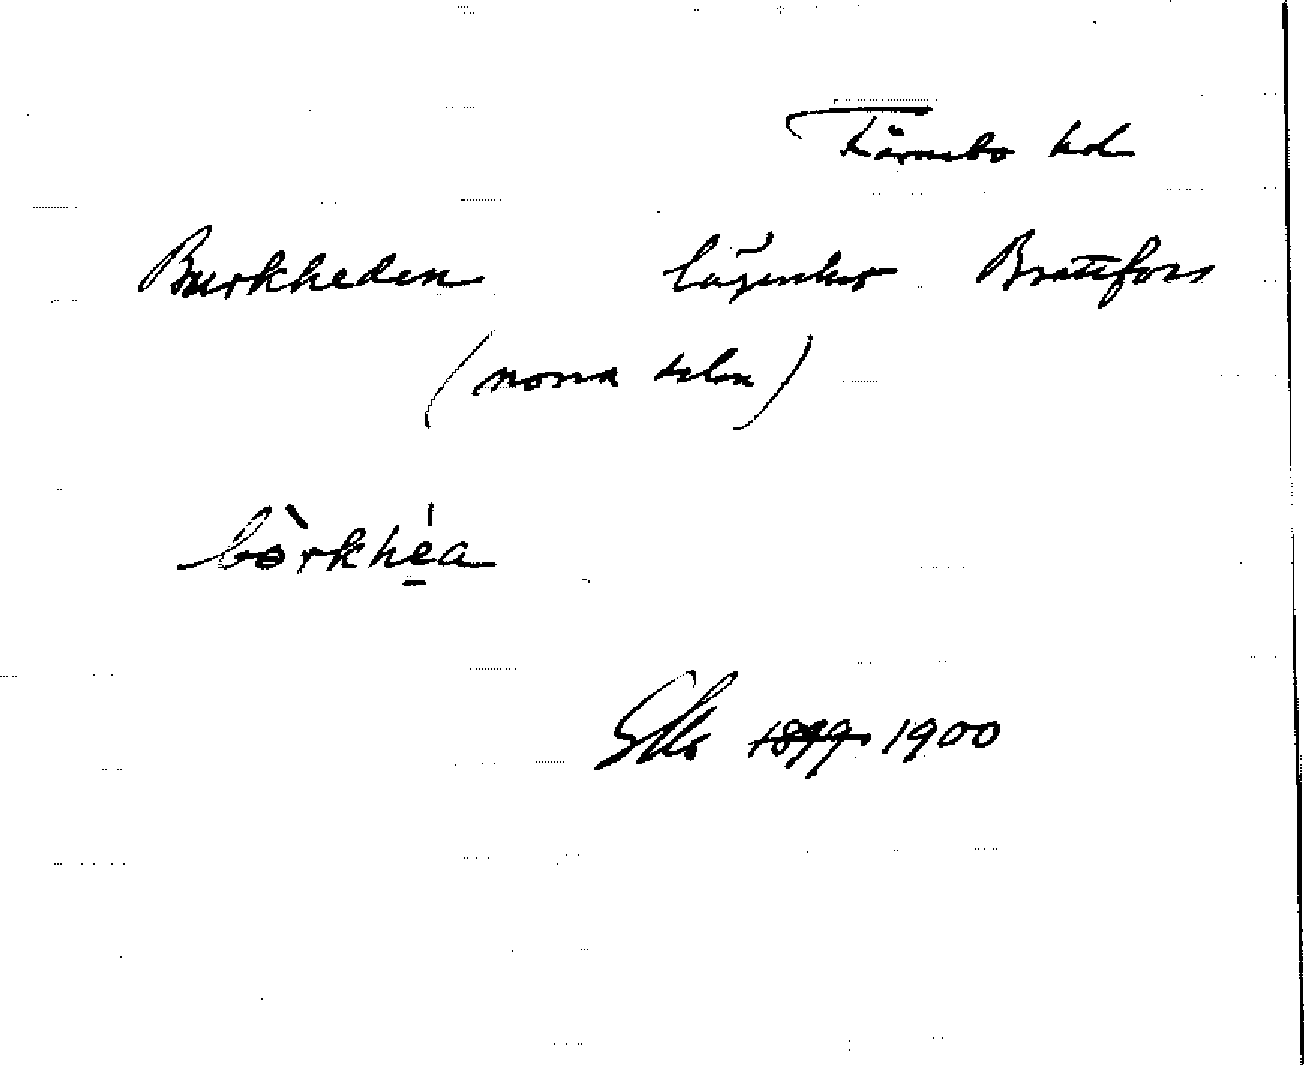 Färnebo hd
Burkheden lägenhet Brattfors
(norra delen)
bòrkhéa
1899 1900